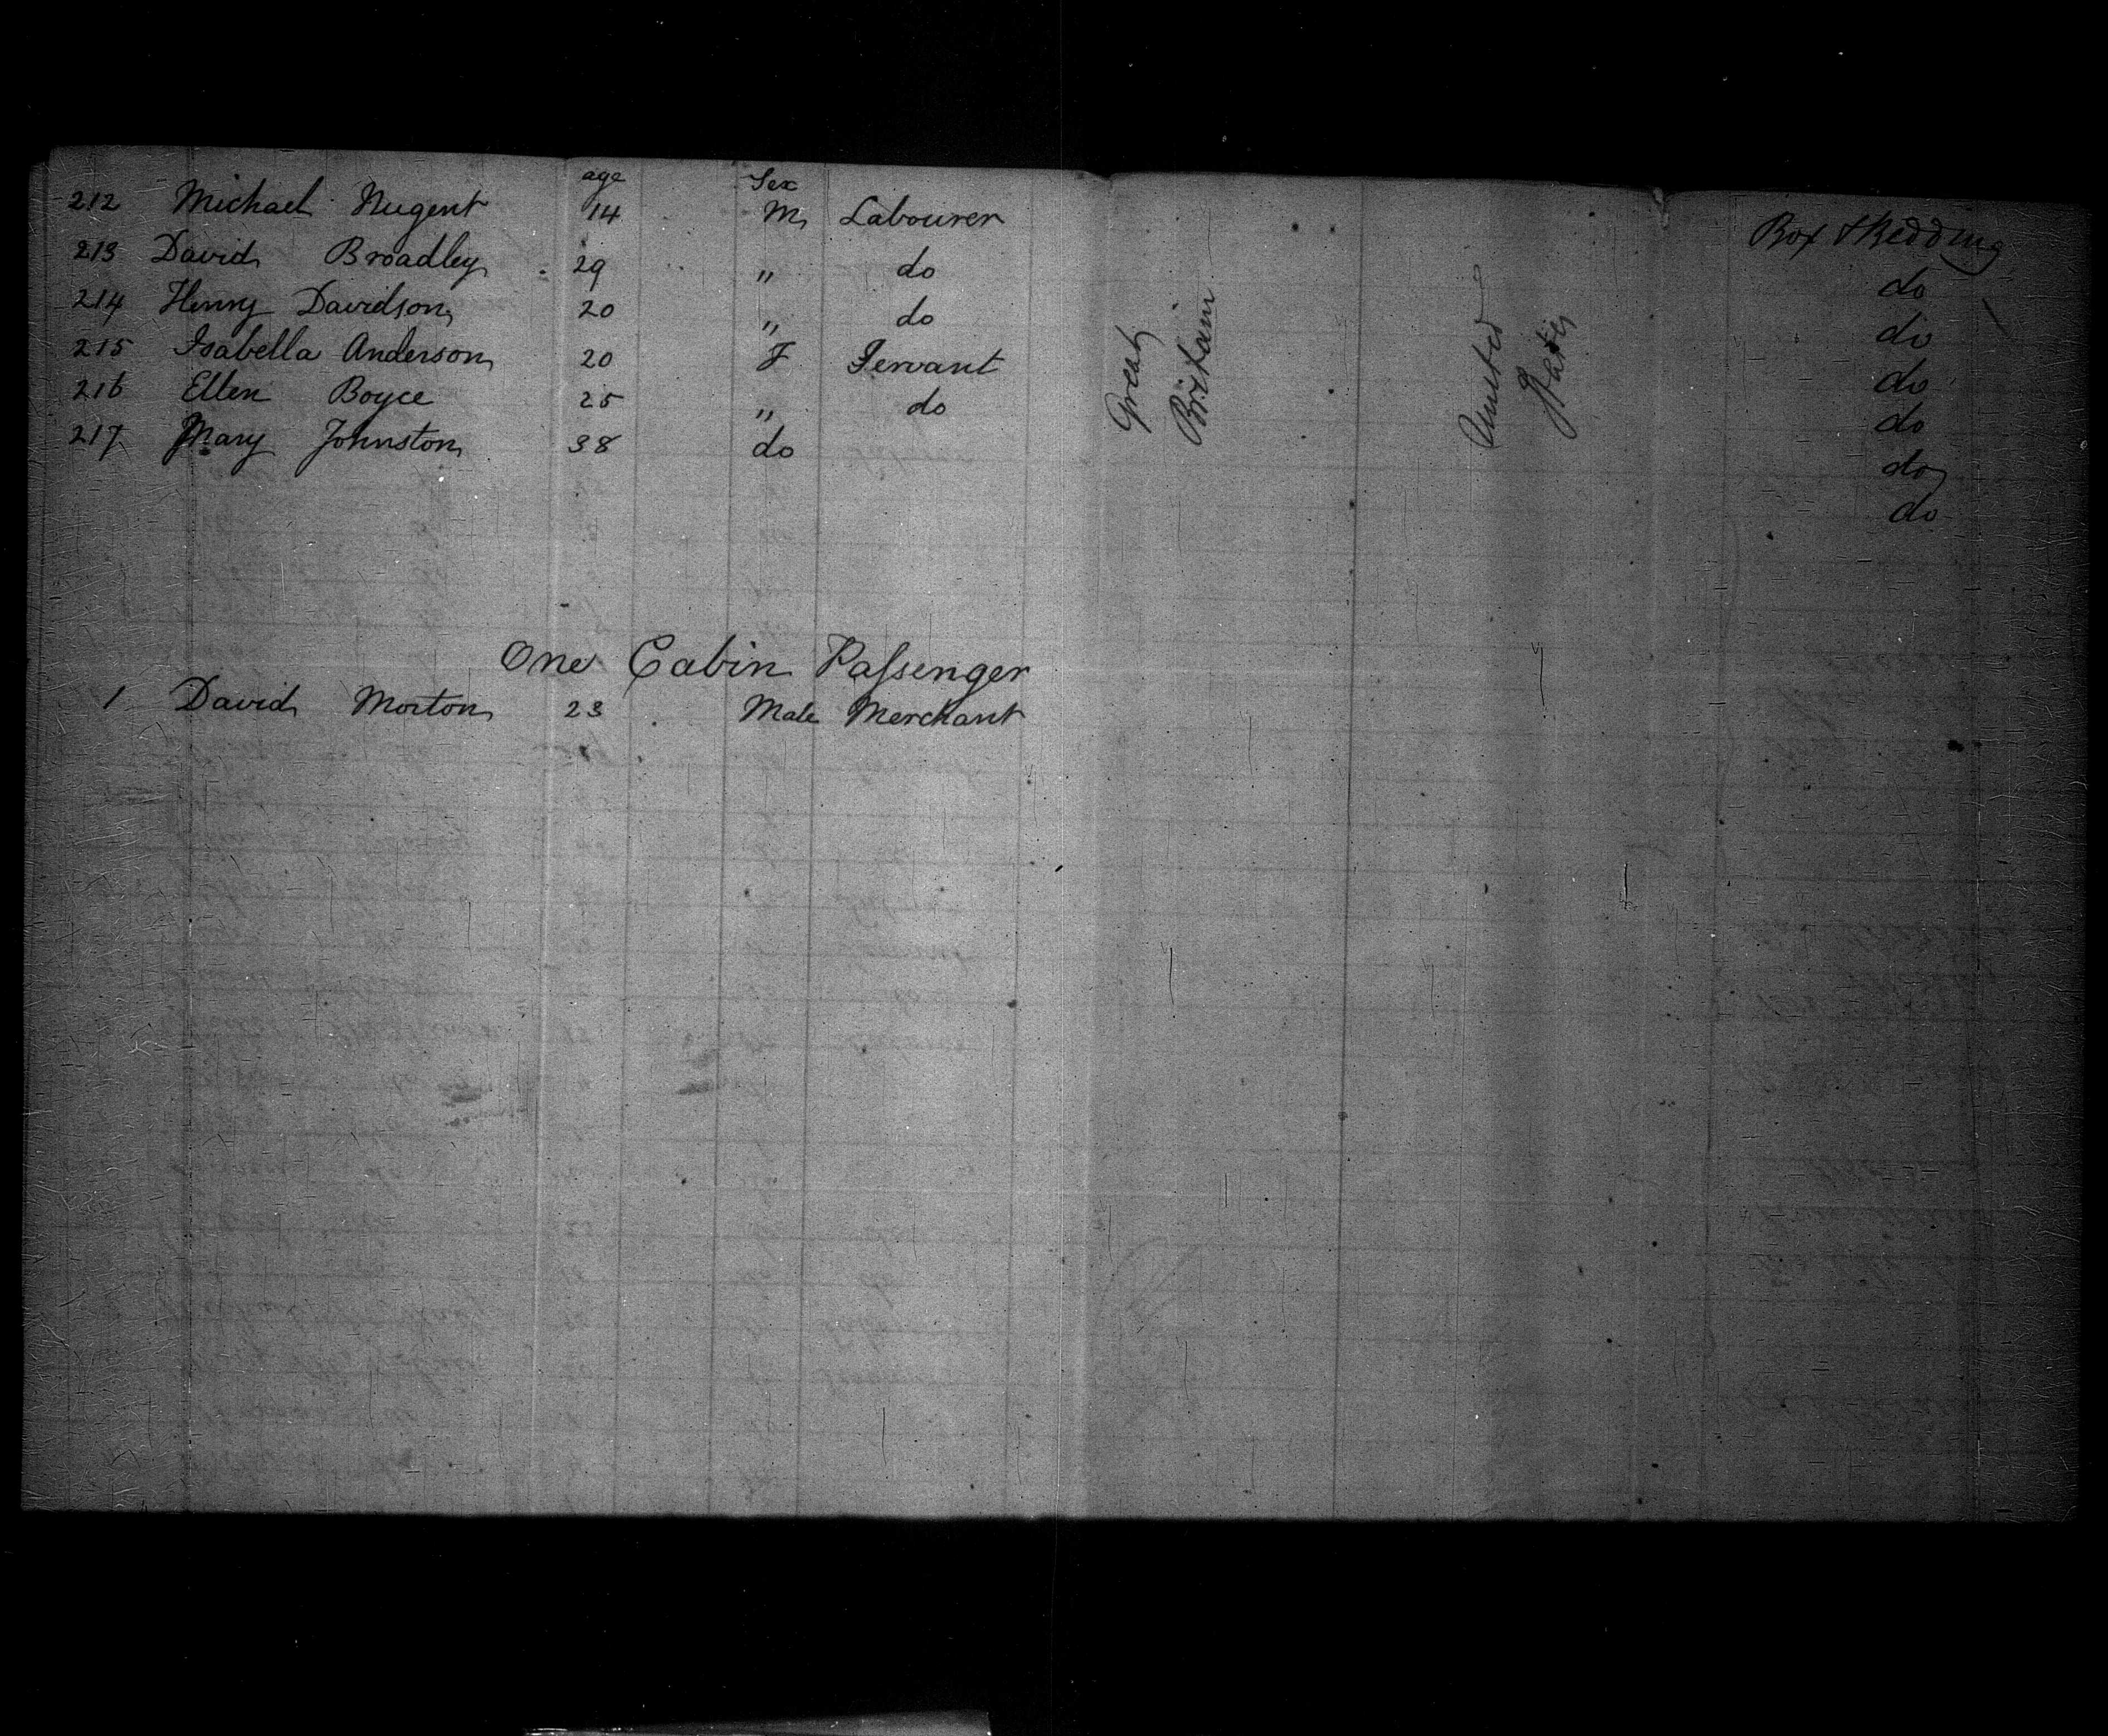 age Sex
212 Michael Nugent 14 M Labourer Box & Bedding
213 David Broadley 29 " do do
214 Henry Davidson 20 " do do
215 Isabella Anderson 20 F Servant do
216 Ellen Boyce 25 " do do
217 Mary Johnston 38 do do
do
Great
Britain
United
States
One Cabin Passenger
1 David Morton 23 Male Merchant